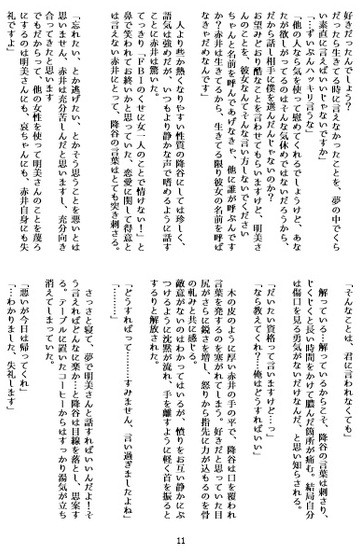 好きだったんでしょう?
だったら生きてた時に言えなかったことを、夢の中でくら
い素直に言えばいいじゃないですか」
「…ずいぶんハッキリ言うな」
「他の人なら気を使って慰めてくれるでしょうけど、あな
たが欲しがってるのはそんな気休めではないだろうから、
だから話し相手に僕を選んだんじゃないのか?
お望みどおり酷なことを言わせてもらいますけど、明美さ
んのことを、彼女なんてそんな言い方しないでください
ちゃんと名前を呼んであげなきゃ、他に誰が呼ぶんです
か?赤井は生きてるから、生きてる限り彼女の名前を呼ば
なきゃだめなんです」
人より些か熱くなりやすい性質の降谷にしては珍しく、
語気は強めだがいつもより静かな声で嗜めるように話す
ことに赤井は驚いた。
てっきり『FBIのくせに女一人のことで情けない!』と
鼻で笑われてお終いかと思っていた、恋愛に関して得意と
は言えない赤井にとって、降谷の言葉はとても突き刺さる。
「忘れたい、とか逃げたい、とかそう思うことを悪いとは
思いません、赤井は充分苦しんだと思いますし、充分向き
合ってきたと思います
でもだからって、他の女性を使って明美さんのことを蔑ろ
にするのは明美さんにも、哀ちゃんにも、赤井自身にも失
礼ですよ」
「そんなことは、君に言われなくても」
解っている…解っているからこそ、降谷の言葉は刺さり、
じくじくと長い時間をかけて膿んだ箇所が痛む。結局自分
は傷口を見る勇気がないだけなんだ、と思い知らされる。
「だいたい資格って言いますけど…っ」
「なら教えてくれ?…俺はどうすればいい」
木の皮のように厚い赤井の手の平で、降谷は口を覆われ
言葉を発するのを塞がれてしまう。好きだと思っていた目
尻がさらに鋭さを増し、怒りから指先に力が込もるのを骨
の軋みと共に感じる。
敵意がないのはわかってはいるが、憤りをお互い静かにぶ
つけるように沈黙が流れ、手を離すように軽く首を振ると
するりと解放された。
「どうすればって………すみません、言い過ぎましたよね」
「………」
さっさと寝て、夢で明美さんと話せばいいんだよ!そ
う言えればどんなに楽か…と降谷は目線を落とし、思案す
る。テーブルに置いたコーヒーからはすっかり湯気が立ち
消えてしまっていた。
「悪いが今日は帰ってくれ」
「…わかりました、失礼します」
11